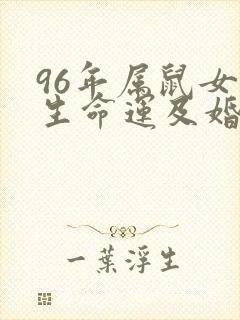 96年属鼠女
生命运及婚
一葉浮生